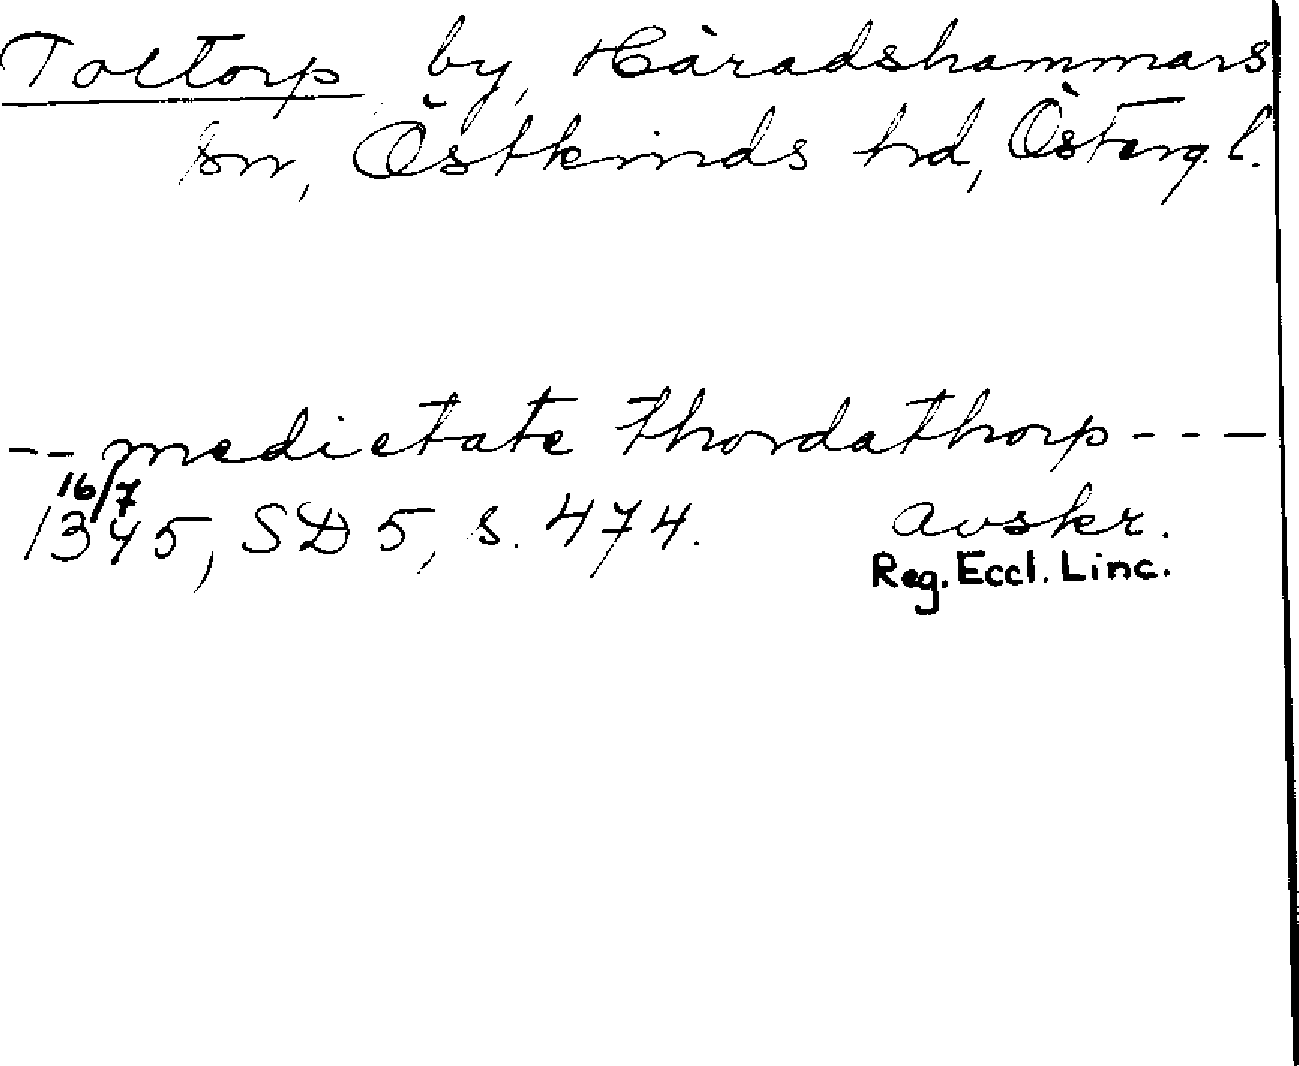 Toltorp by, Häradshammars
sn, Östkinds hd, Österg.l.
-- medietate thordathorp ---
16/7
1345, SD 5, s. 474. avskr.
Reg. Eccl. Linc.